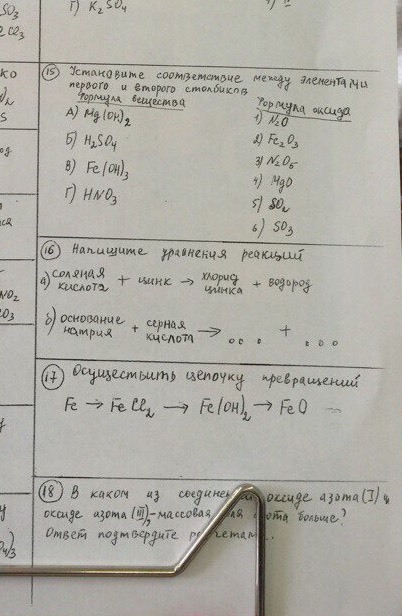 SO3
Г) K2SO4
15 Установите соответствие между элементами
первого и второго столбиков
Формула вещества
Формула оксида
А) Mg(OH)2
1) N2O
Б) H2SO4
2) Fe2O3
В) Fe(OH)3
3) N2O5
4) MgO
Г) HNO3
5) SO2
6) SO3
16 Напишите уравнения реакций
а) соляная кислота + цинк → хлорид цинка + водород
б) основание натрия + серная кислота → ... + ...
17 Осуществить цепочку превращений
Fe → FeCl2 → Fe(OH)2 → FeO
18 В каком из оксиде азота (I) и
оксиде азота (III), массовая азота больше?
Ответ подтвердите